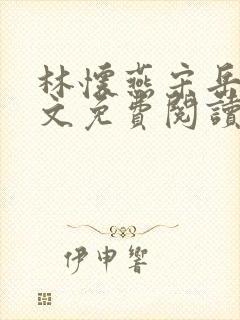 林懷燕宋岳
文免費閱讀
伊申響